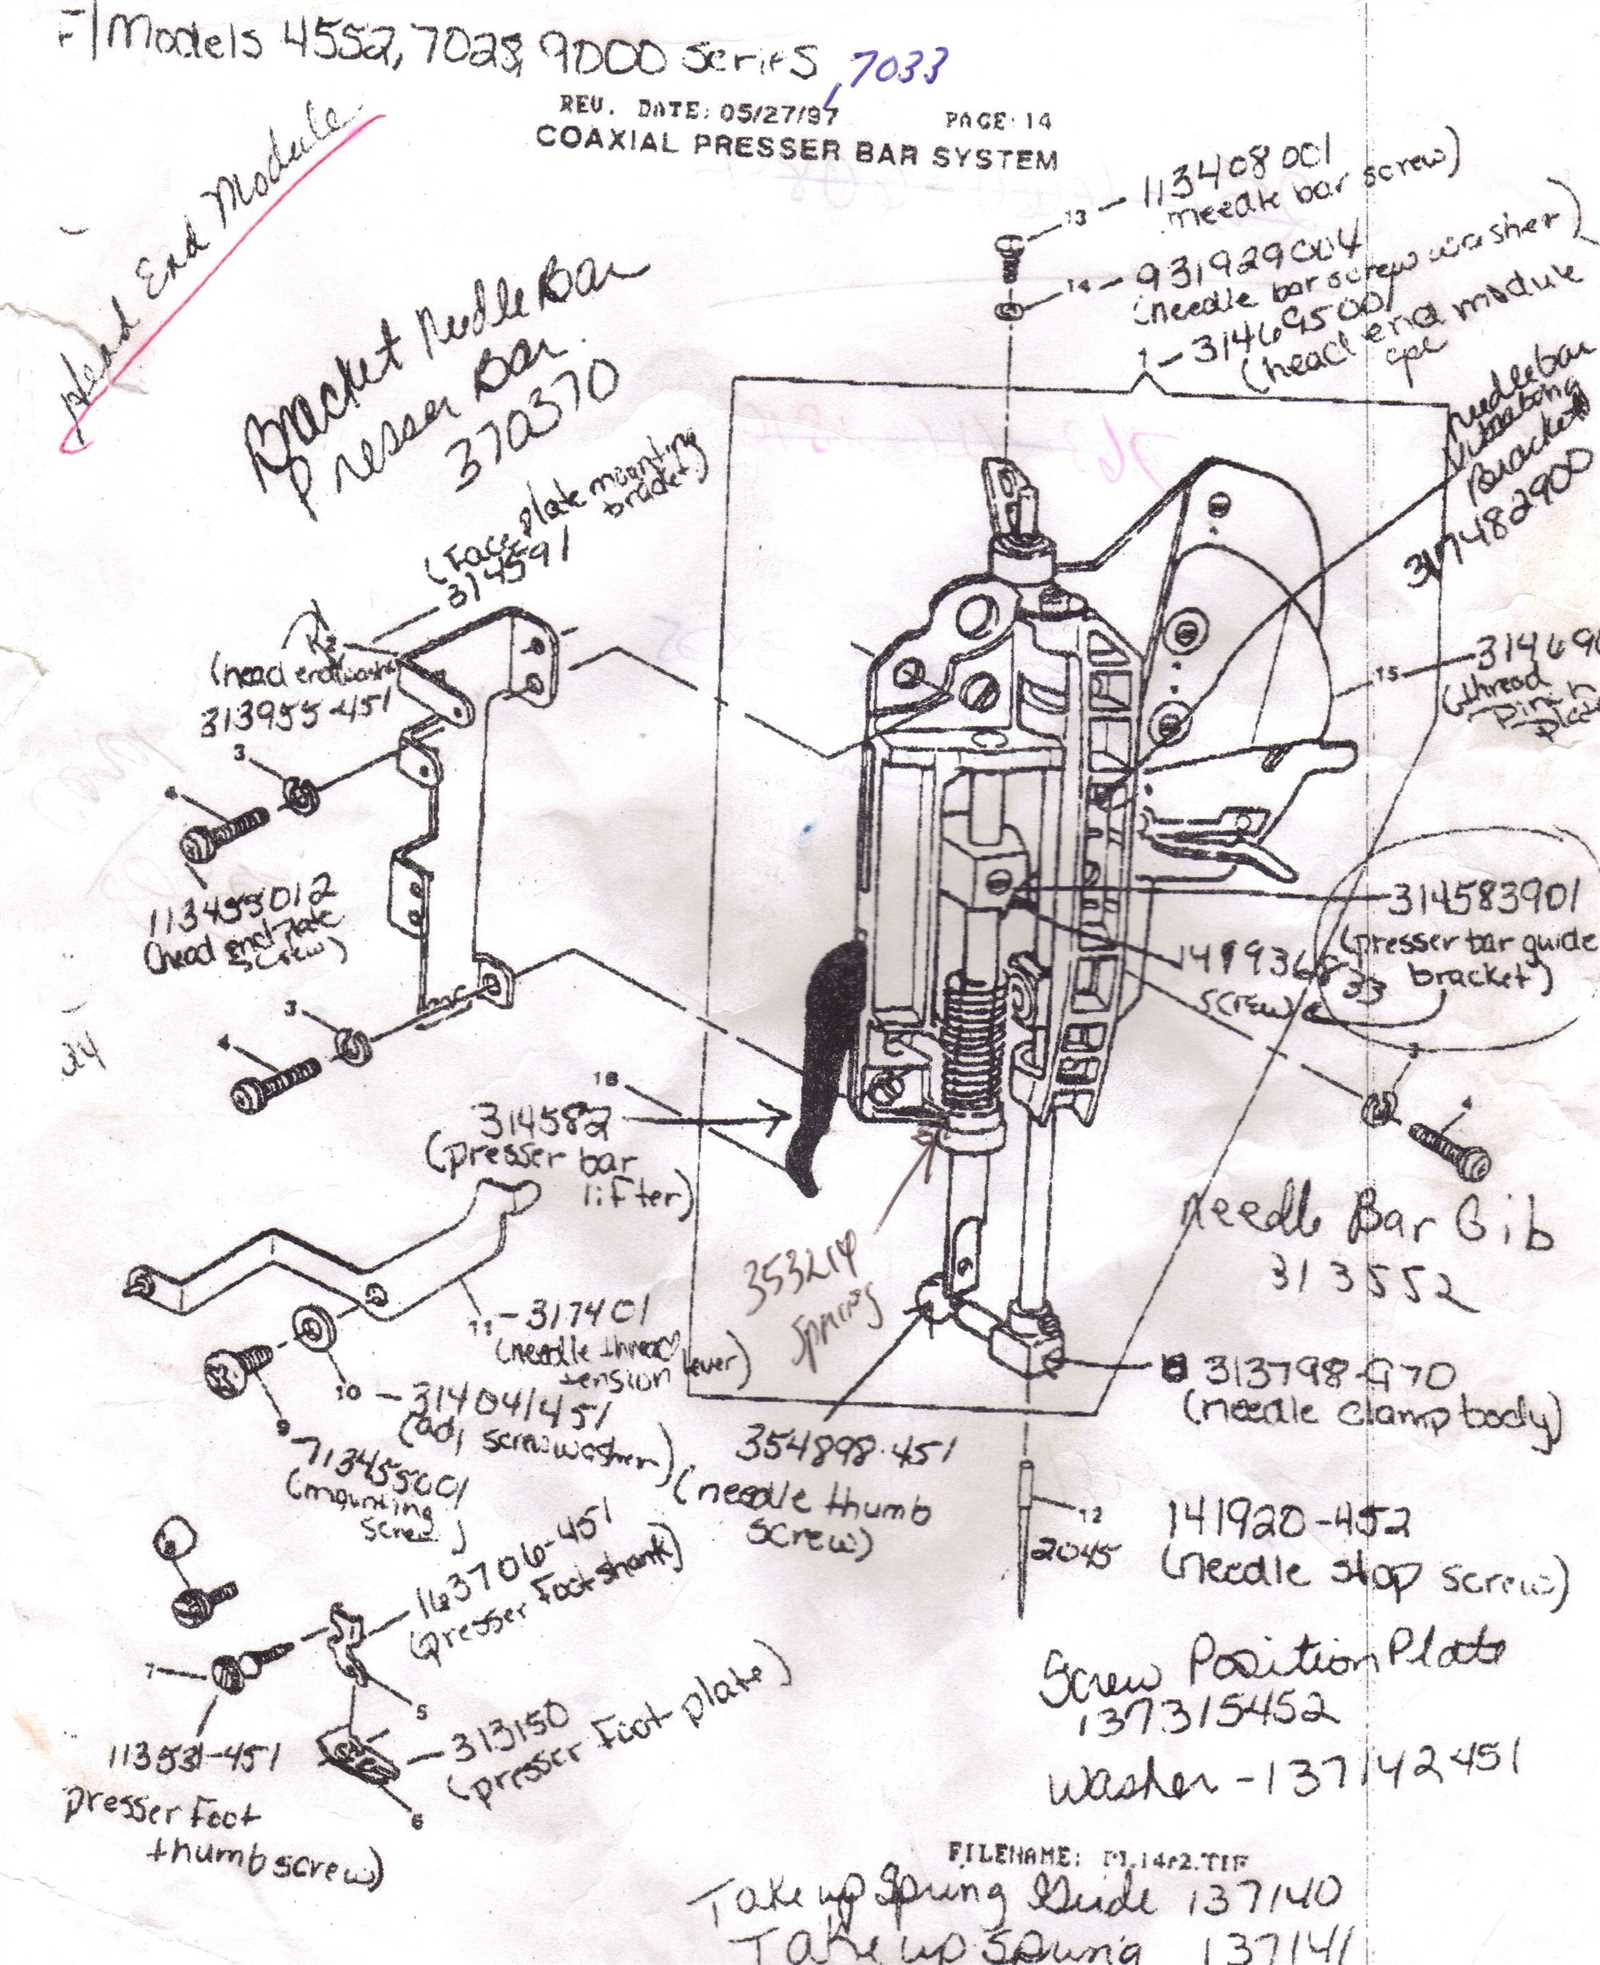 F/Models 4552, 7028, 9000 series, 7033
REV. DATE: 05/27/97
PAGE: 14
COAXIAL PRESSER BAR SYSTEM
Head End Module
Bracket Needle Bar
Presser Bar.
370370
13 - 113408001
needle bar screw)
14 - 931929004
(needle bar screw washer)
1 - 314695001
(head end module
cpl
needle bar
Bracket
3174482900
(Face plate mounting
bracket)
314591
(head end washer
313955-451
3
4
113455012
(head end plate
screw)
3
4
15
(thread
pinch
314583901
(presser bar guide
bracket)
33
screw)
3
4
24
18
314582
(presser bar
lifter)
Needle Bar Gib
313552
353214
spring
11 - 317401
(needle thread
tension lever)
10 - 314041451
(adj screw washer)
9
713455001
(mounting
screw)
313798-970
(needle clamp body)
354898-451
(needle thumb
screw)
12
2045
141920-452
(needle stop screw)
163706-451
(presser foot shank)
7
5
313150
(presser foot plate)
6
113531-451
presser foot
thumb screw)
Screw Position Plate
137315452
washer - 137142451
FILENAME: P1.14r2.TIF
Take up Spring Guide 137140
Take up Spring 137141